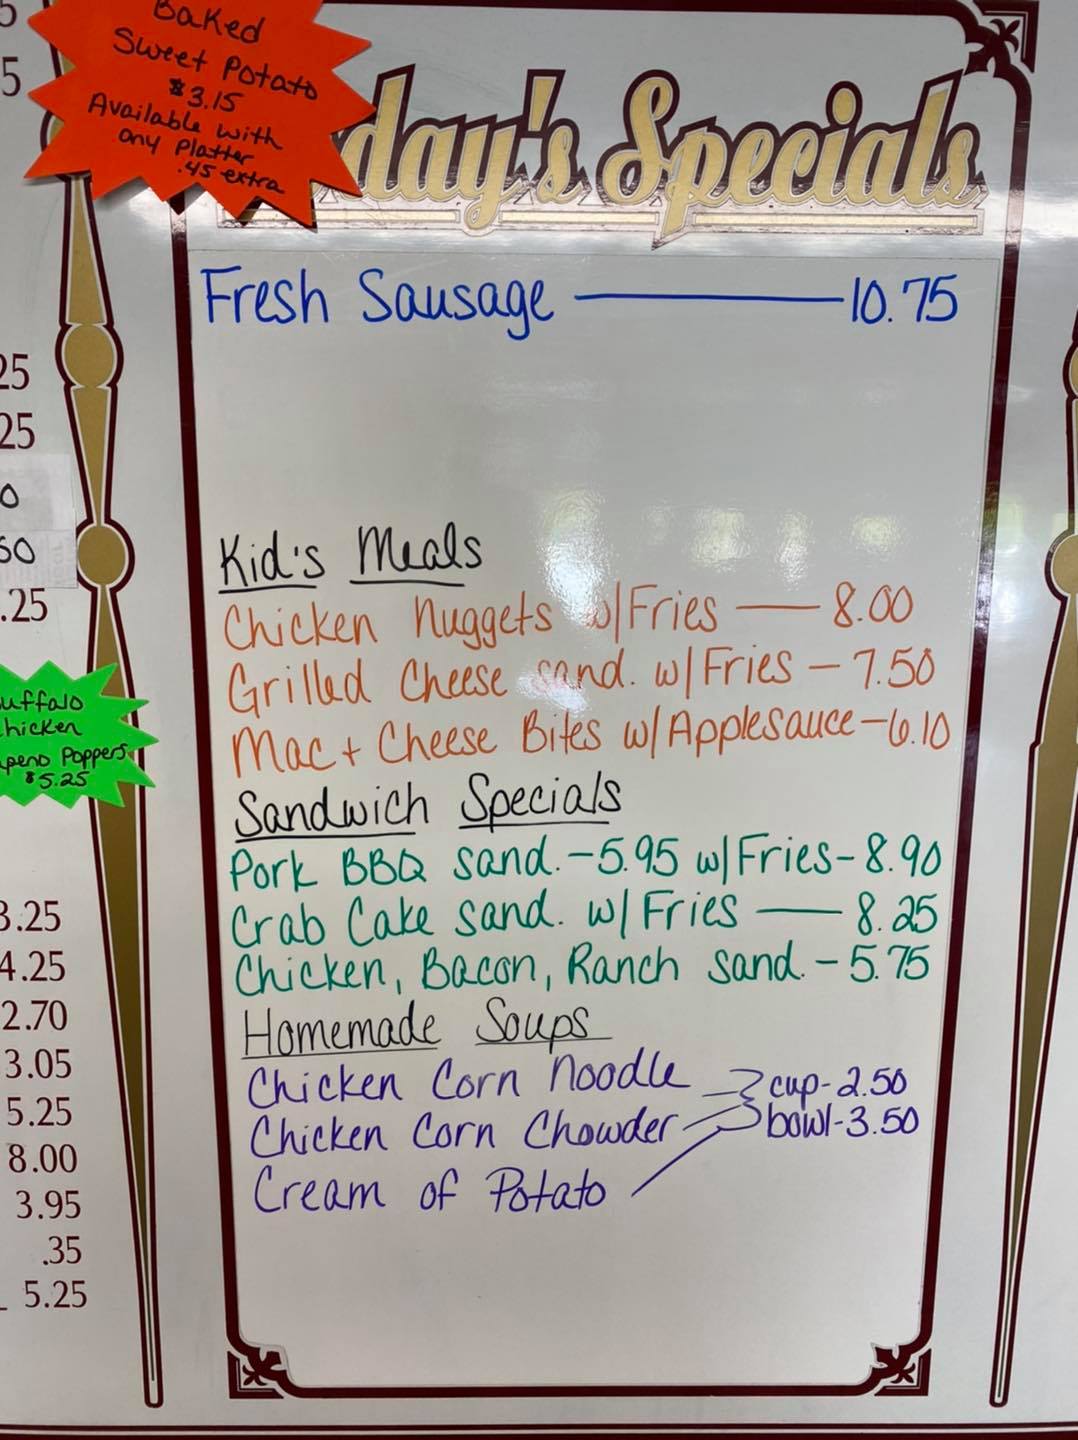 Baked
Sweet Potato
$3.15
Available with
any Platter
.45 extra
day's Specials
Fresh Sausage — 10.75
Kid's Meals
Chicken Nuggets w/Fries — 8.00
Grilled Cheese sand. w/Fries — 7.50
Mac + Cheese Bites w/Applesauce — 6.10
Sandwich Specials
Pork BBQ sand. - 5.95 w/Fries - 8.90
Crab Cake sand. w/Fries — 8.25
Chicken, Bacon, Ranch sand. - 5.75
Homemade Soups
Chicken Corn Noodle
Chicken Corn Chowder
Cream of Potato
cup - 2.50
bowl - 3.50
5
5
25
25
0
50
.25
uffalo
hicken
peno Poppers
$5.25
3.25
4.25
2.70
3.05
5.25
8.00
3.95
.35
5.25